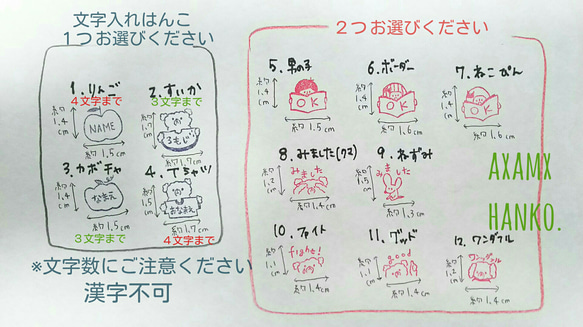 文字入れはんこ
1つお選びください
1.りんご
4文字まで
約1.4cm
NAME
約1.5cm
2.すいか
3文字まで
約1.7cm
3もじ
約1.7cm
3.カボチャ
約1.4cm
なまえ
約1.5cm
3文字まで
4.Tシャツ
約1.7cm
おなまえ
約1.7cm
4文字まで
※文字数にご注意ください
漢字不可
2つお選びください
5.男の子
約1.4cm
OK
約1.5cm
6.ボーダー
約1.4cm
OK
約1.6cm
7.ねこぴん
約1.4cm
OK
約1.6cm
8.みました(クマ)
約1.2cm
みました
約1.4cm
9.ねずみ
約1.5cm
みました
約1.3cm
10.ファイト
約1.1cm
fight!
約1.4cm
11.グッド
約1.1cm
good
約1.4cm
12.ワンダフル
約1.2cm
ワンダフル
約1.4cm
AXAMX
HANKO.